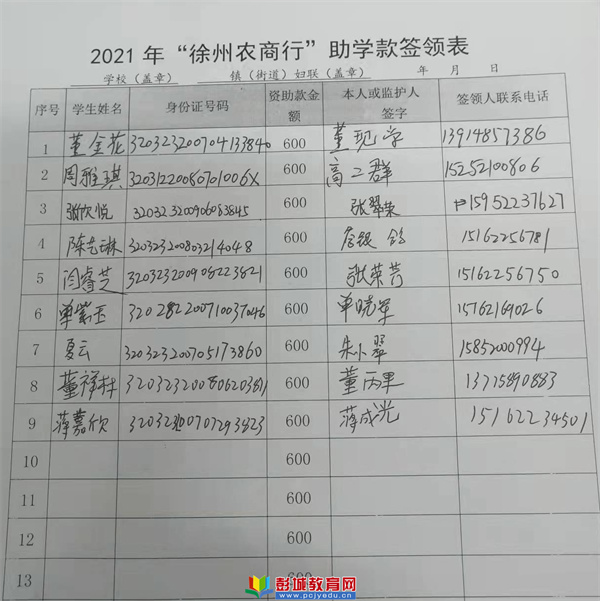 2021年“徐州农商行”助学款签领表
学校（盖章） 镇（街道）妇联（盖章） 年 月 日
序号 学生姓名 身份证号码 资助款金额 本人或监护人签字 签领人联系电话
1 董金花 600 董现学 13914857386
2 周雅琪 32031220080701006X 600 高二群 15252100806
3 张欣悦 320323200906083845 600 张翠荣 15952237627
4 陈艺琳 320323200803214048 600 15162256781
5 闫睿芝 320323200908223821 600 张荣芳 15162256750
6 单紫玉 320282200710037046 600 单晓军 15762169026
7 夏云 320323200705173860 600 朱小翠 15852000994
8 董祥林 600 董丙果 13775890883
9 蒋嘉欣 600 蒋成光 15162234501
10 600
11 600
12 600
13 600
彭城教育网
www.pcjyedu.cn